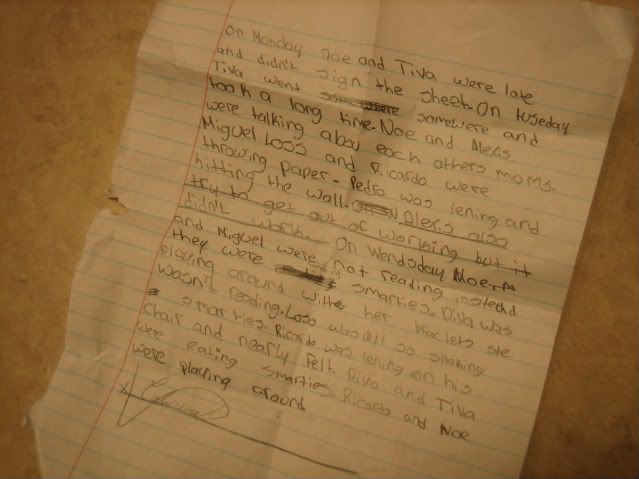 On Monday noe and Tiva were late
and didn't sign the sheet. On tuseday
Tiva went somewere and
took a long time. Noe and Alexis
were talking abou each others moms.
Miguel. Loss and Ricardo were
throwing paper - Pedro was lening and
hitting the wall. Alexis also
try to get out of working but it
didn't work. On Wendsday Noe
and Miguel were not reading insteed
they were smarties. Diva was
playing around with her braclets she
wasn't reading. Loss was all so
smarties. Ricardo was lening on his
chair and nearly felt. Diva and Tiva
were eating smarties. Ricardo and Noe
were playing around